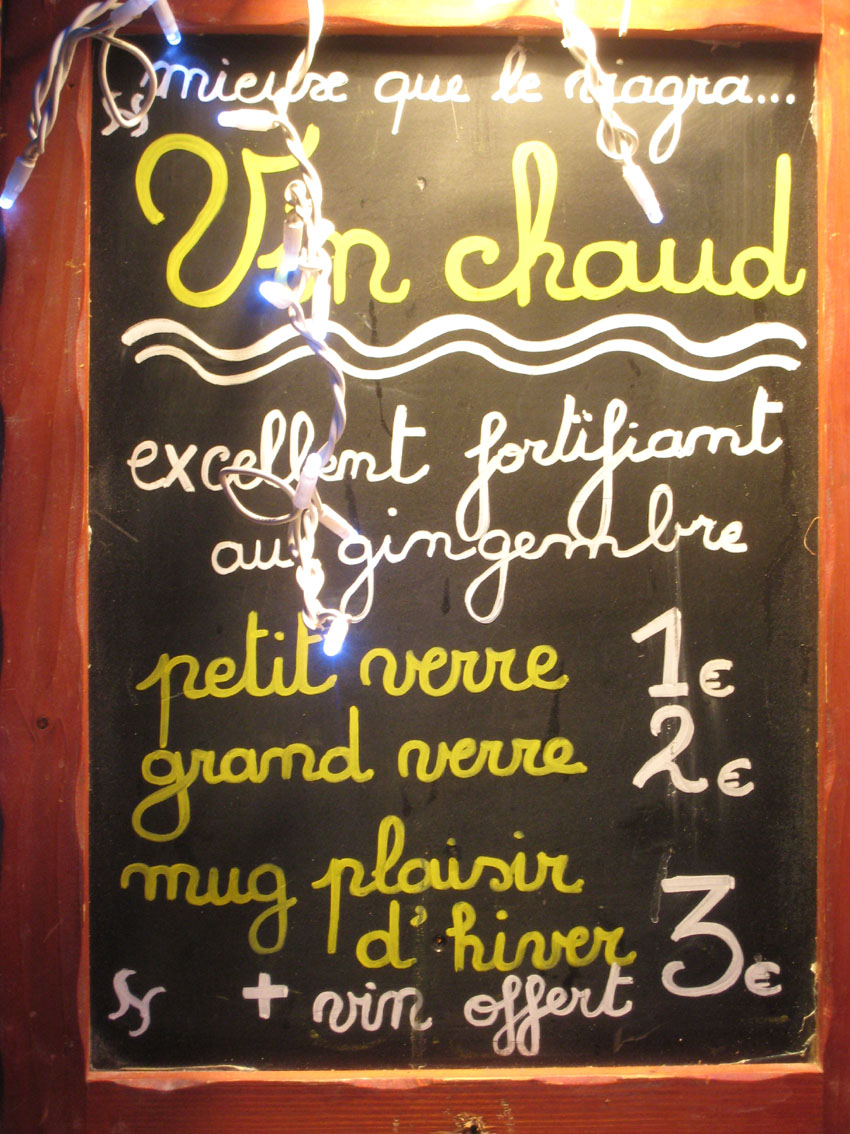 mieuse que le niagra...
Vin chaud
excellent fortifiant
au gingembre
petit verre 1€
grand verre 2€
mug plaisir
d'hiver 3€
+ vin offert